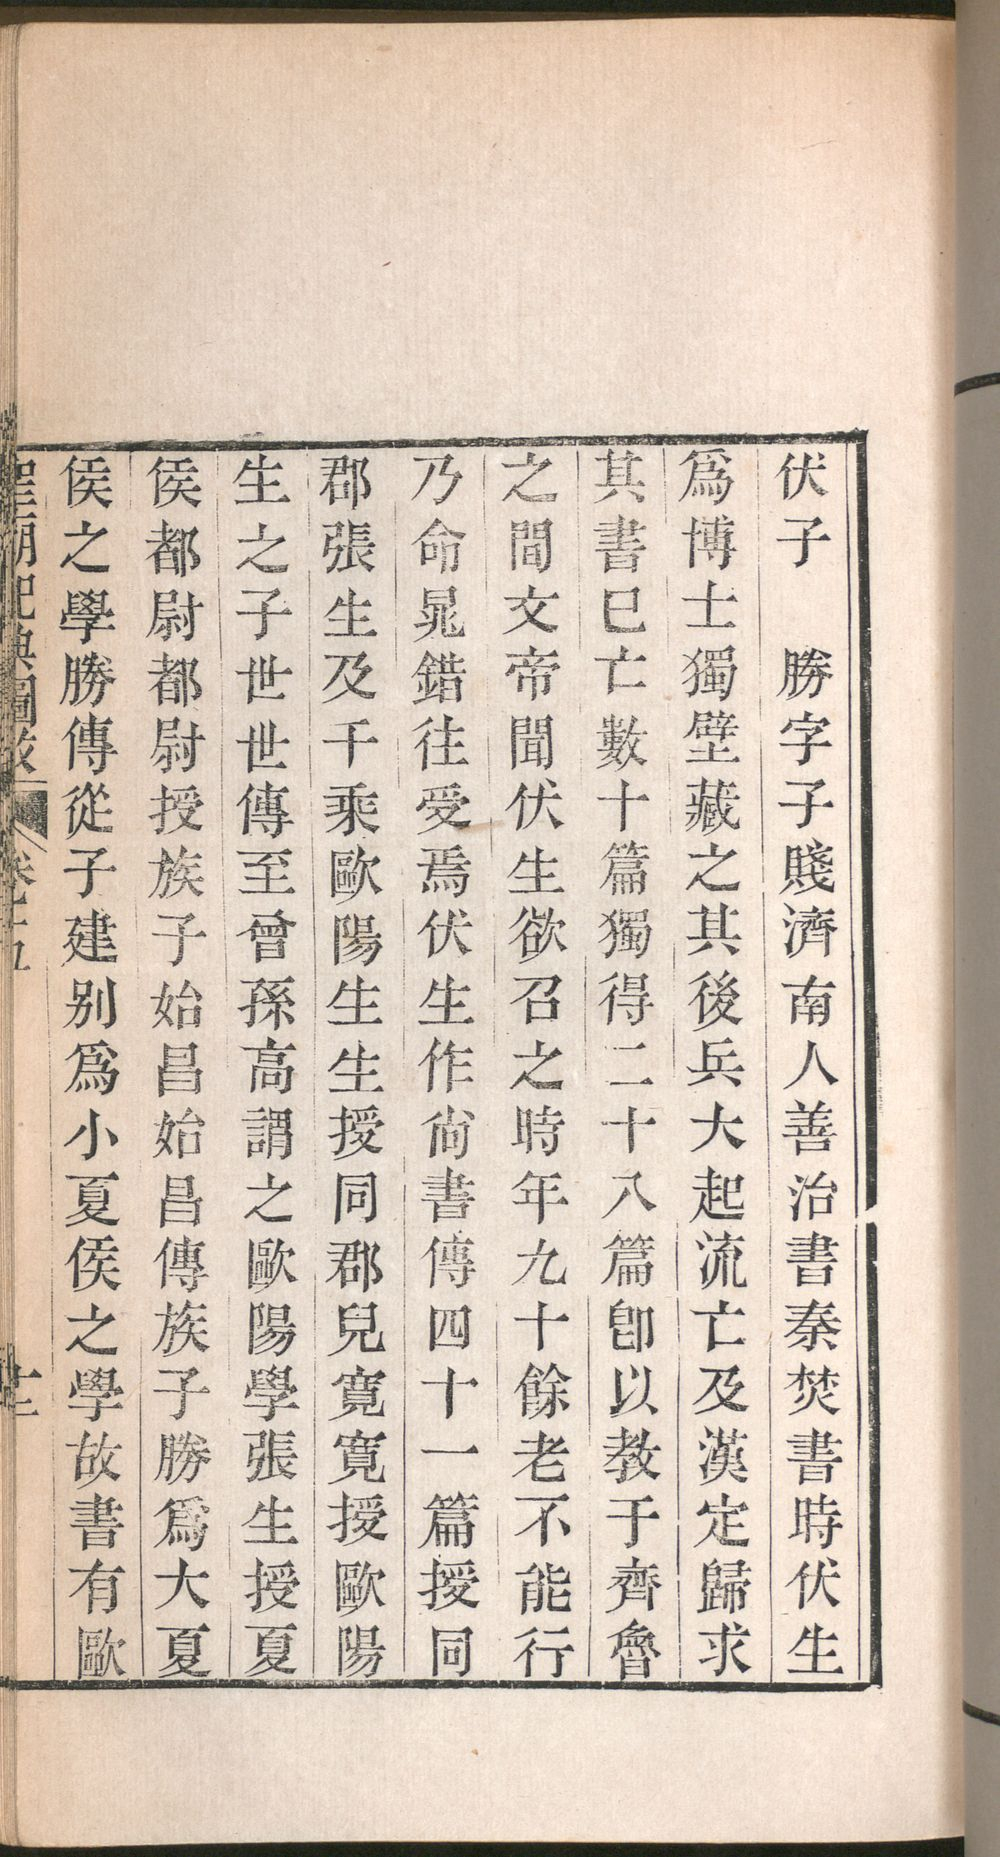 伏子　勝字子賤濟南人善治書秦焚書時伏生
爲博士獨壁藏之其後兵大起流亡及漢定歸求
其書已亡數十篇獨得二十八篇卽以教于齊魯
之間文帝聞伏生欲召之時年九十餘老不能行
乃命晁錯往受焉伏生作尙書傳四十一篇授同
郡張生及千乘歐陽生生授同郡兒寛寛授歐陽
生之子世世傳至曾孫高謂之歐陽學張生授夏
侯都尉都尉授族子始昌始昌傳族子勝爲大夏
侯之學勝傳從子建别爲小夏侯之學故書有歐
聖朝祀典圖攷　卷十五　十二